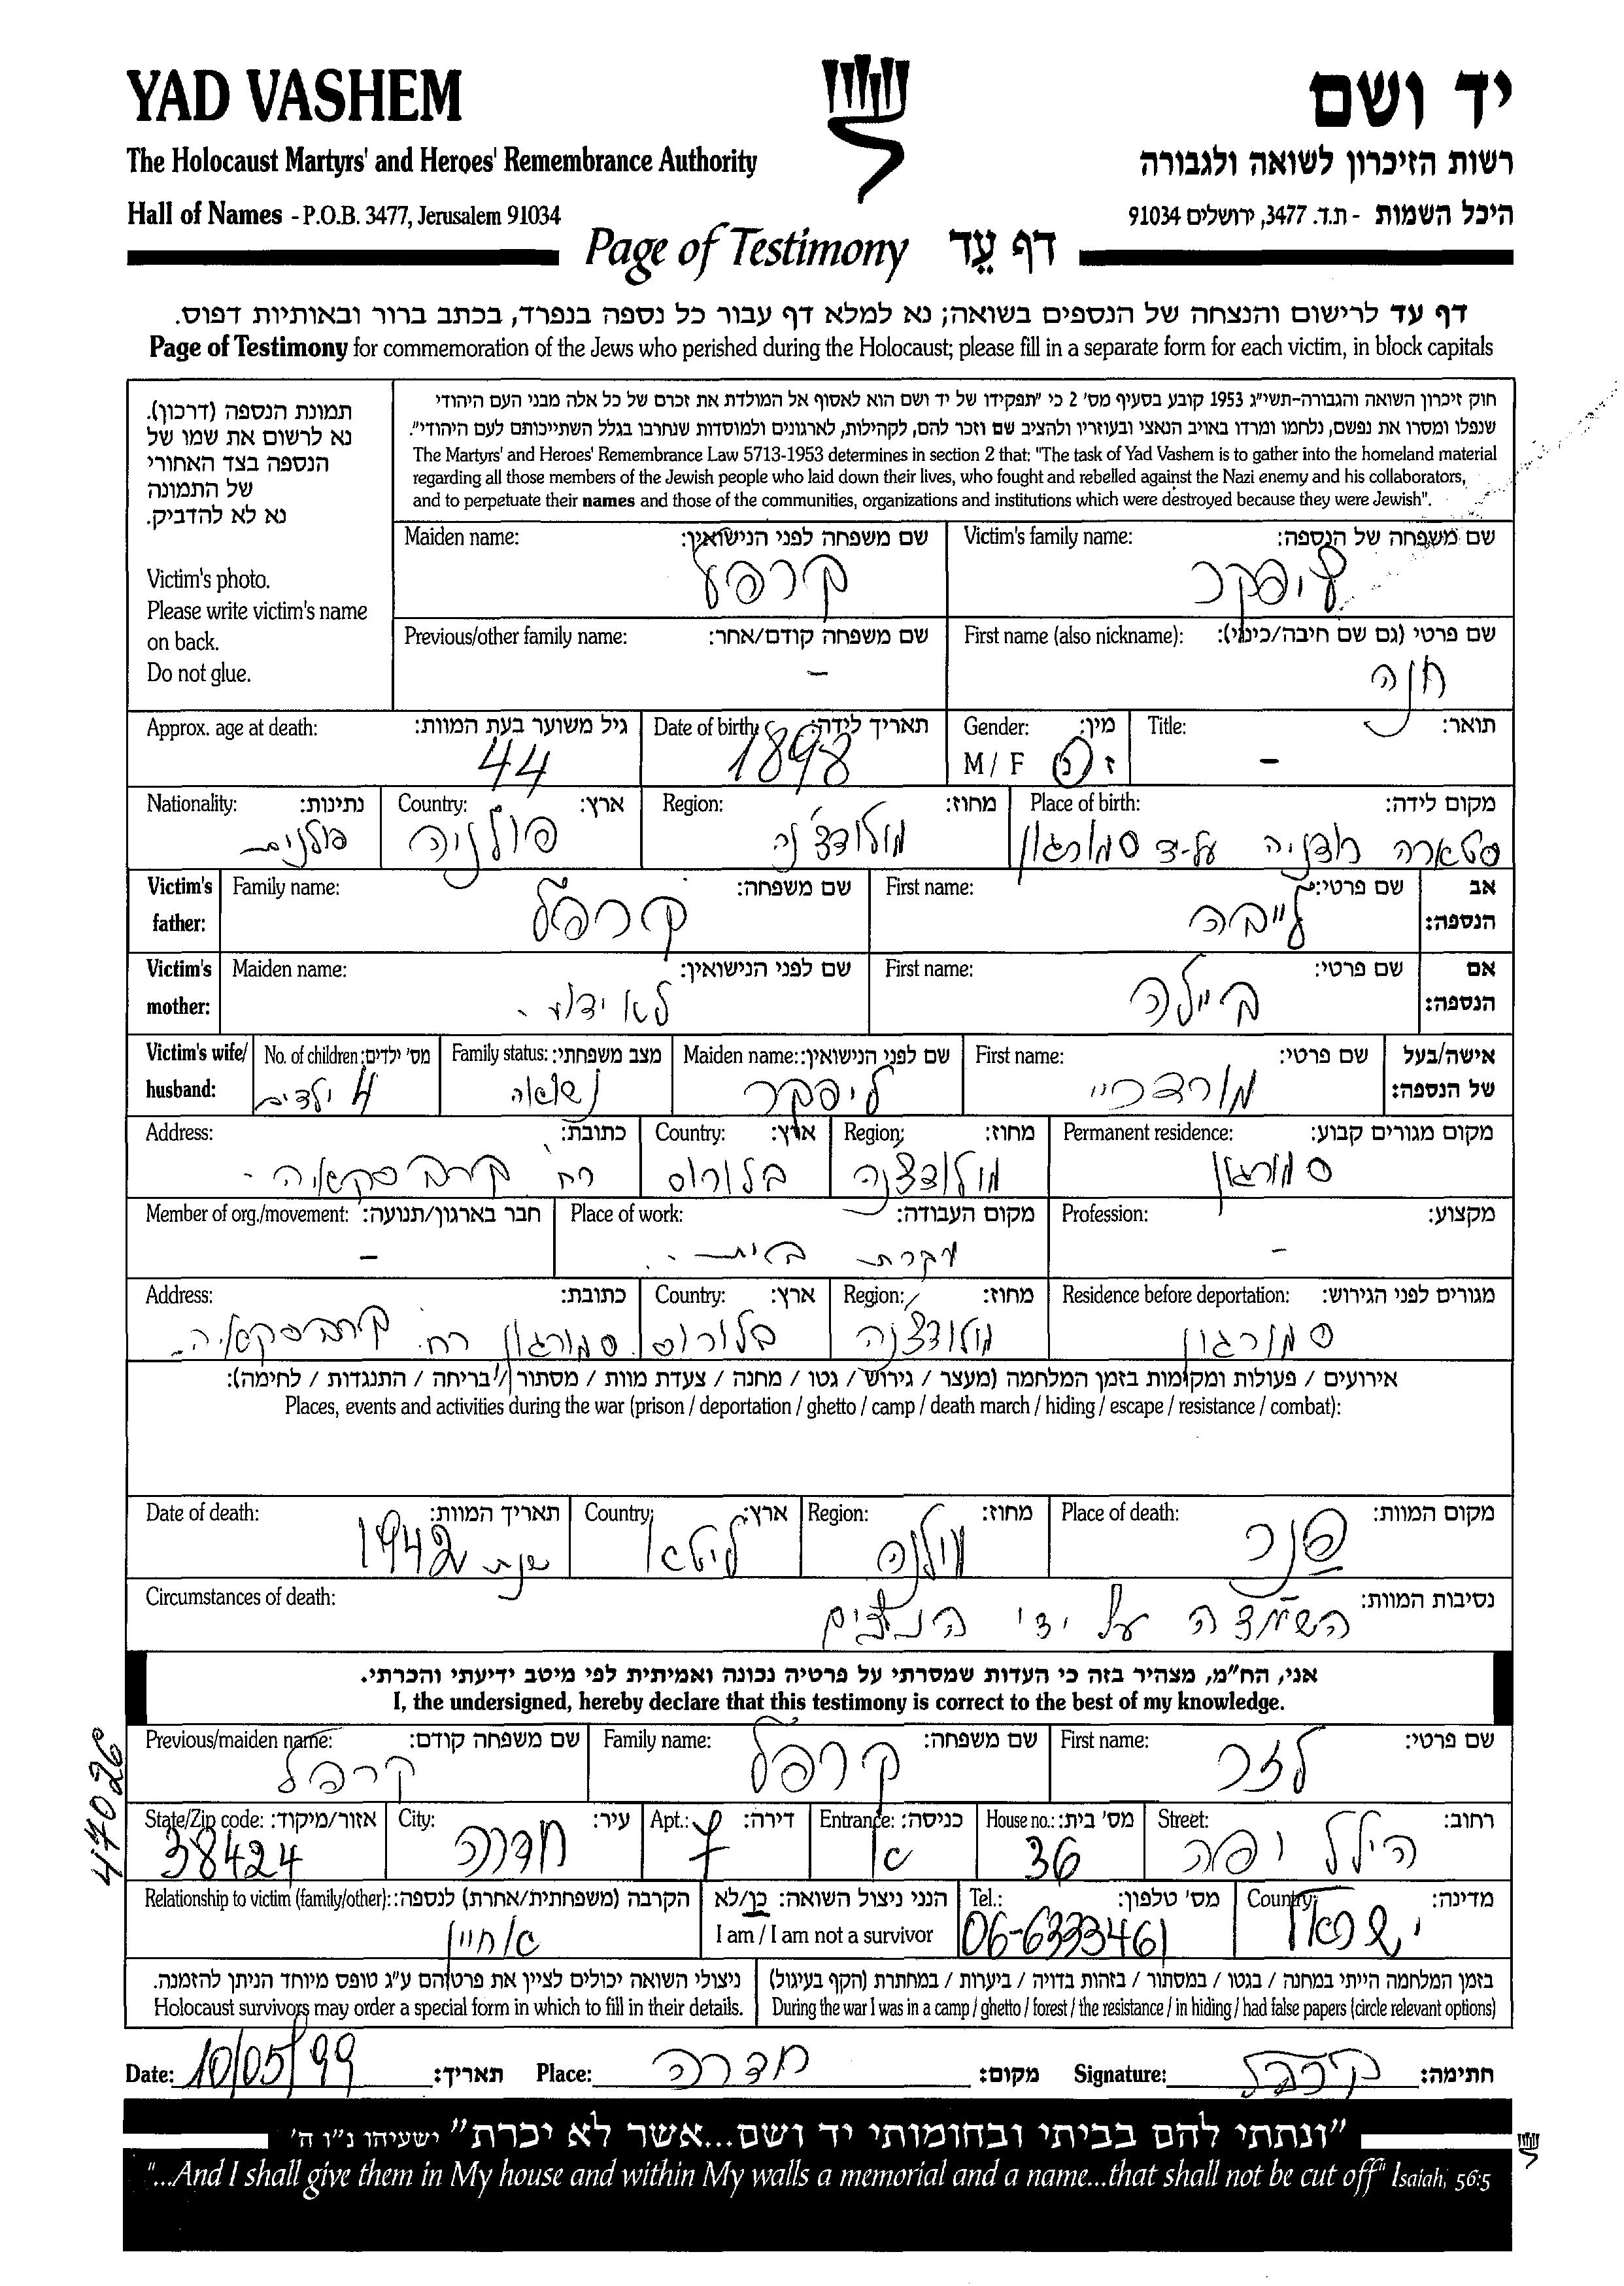 YAD VASHEM
יד ושם
The Holocaust Martyrs' and Heroes' Remembrance Authority
רשות הזיכרון לשואה ולגבורה
Hall of Names - P.O.B. 3477, Jerusalem 91034
היכל השמות - ת.ד. 3477, ירושלים 91034
Page of Testimony דף עֵד
דף עד לרישום והנצחה של הנספים בשואה; נא למלא דף עבור כל נספה בנפרד, בכתב ברור ובאותיות דפוס.
Page of Testimony for commemoration of the Jews who perished during the Holocaust; please fill in a separate form for each victim, in block capitals
תמונת הנספה (דרכון).
נא לרשום את שמו של
הנספה בצד האחורי
של התמונה
נא לא להדביק.
Victim's photo.
Please write victim's name
on back.
Do not glue.
חוק זיכרון השואה והגבורה-תשי"ג 1953 קובע בסעיף מס' 2 כי "תפקידו של יד ושם הוא לאסוף אל המולדת את זכרם של כל אלה מבני העם היהודי
שנפלו ומסרו את נפשם, נלחמו ומרדו באויב הנאצי ובעוזריו ולהציב שם וזכר להם, לקהילות, לארגונים ולמוסדות שנחרבו בגלל השתייכותם לעם היהודי".
The Martyrs' and Heroes' Remembrance Law 5713-1953 determines in section 2 that: "The task of Yad Vashem is to gather into the homeland material
regarding all those members of the Jewish people who laid down their lives, who fought and rebelled against the Nazi enemy and his collaborators,
and to perpetuate their names and those of the communities, organizations and institutions which were destroyed because they were Jewish".
Victim's family name: שם משפחה של הנספה:
ליפקר
Maiden name: שם משפחה לפני הנישואין:
קרפל
First name (also nickname): שם פרטי (גם שם חיבה/כינוי):
חנה
Previous/other family name: שם משפחה קודם/אחר:
-
Title: תואר:
-
Gender: מין:
M / F ז נ
Date of birth: תאריך לידה:
1898
Approx. age at death: גיל משוער בעת המוות:
44
Place of birth: מקום לידה:
סטארה רודניה על-יד סמורגון
Region: מחוז:
מולודצ'נה
Country: ארץ:
פולניה
Nationality: נתינות:
פולנים
Victim's father: אב הנספה:
First name: שם פרטי:
לייבה
Family name: שם משפחה:
קרפל
Victim's mother: אם הנספה:
First name: שם פרטי:
ביילה
Maiden name: שם לפני הנישואין:
לא ידוע.
Victim's wife/ husband: אישה/בעל של הנספה:
First name: שם פרטי:
מורדכיי
Maiden name: שם לפני הנישואין:
ליפקר
Family status: מצב משפחתי:
נשואה
No. of children: מס' ילדים:
4 ילדים
Permanent residence: מקום מגורים קבוע:
סמורגון
Region: מחוז:
מולודצנה
Country: ארץ:
בלורוס
Address: כתובת:
רח'
Profession: מקצוע:
-
Place of work: מקום העבודה:
עקרת בית.
Member of org./movement: חבר בארגון/תנועה:
-
Residence before deportation: מגורים לפני הגירוש:
סמורגון
Region: מחוז:
מולודצנה
Country: ארץ:
בלורוס
Address: כתובת:
סמורגון רח.
אירועים / פעולות ומקומות בזמן המלחמה (מעצר / גירוש / גטו / מחנה / צעדת מוות / מסתור / בריחה / התנגדות / לחימה):
Places, events and activities during the war (prison / deportation / ghetto / camp / death march / hiding / escape / resistance / combat):
Place of death: מקום המוות:
פונר
Region: מחוז:
וילנה
Country: ארץ:
ליטא
Date of death: תאריך המוות:
שנת 1942
Circumstances of death: נסיבות המוות:
השמדה על ידי הנאצים
אני, הח"מ, מצהיר בזה כי העדות שמסרתי על פרטיה נכונה ואמיתית לפי מיטב ידיעתי והכרתי.
I, the undersigned, hereby declare that this testimony is correct to the best of my knowledge.
First name: שם פרטי:
לזר
Family name: שם משפחה:
קרפל
Previous/maiden name: שם משפחה קודם:
קרפל
Street: רחוב:
הילל יפה
House no.: מס' בית:
36
Entrance: כניסה:
א
Apt.: דירה:
7
City: עיר:
חדרה
State/Zip code: אזור/מיקוד:
38424
47026
Country: מדינה:
ישראל
Tel.: מס' טלפון:
06-6333461
הנני ניצול השואה: כן/לא
I am / I am not a survivor
Relationship to victim (family/other): הקרבה (משפחתית/אחרת) לנספה:
אחיין
בזמן המלחמה הייתי במחנה / בגטו / במסתור / בזהות בדויה / ביערות / במחתרת (הקף בעיגול)
During the war I was in a camp / ghetto / forest / the resistance / in hiding / had false papers (circle relevant options)
ניצולי השואה יכולים לציין את פרטיהם ע"ג טופס מיוחד הניתן להזמנה.
Holocaust survivors may order a special form in which to fill in their details.
Date: 10/05/99 תאריך: Place: חדרה מקום: Signature: קרפל חתימה:
"ונתתי להם בביתי ובחומותי יד ושם...אשר לא יכרת" ישעיהו נ"ו ה'
"...And I shall give them in My house and within My walls a memorial and a name...that shall not be cut off" Isaiah, 56:5